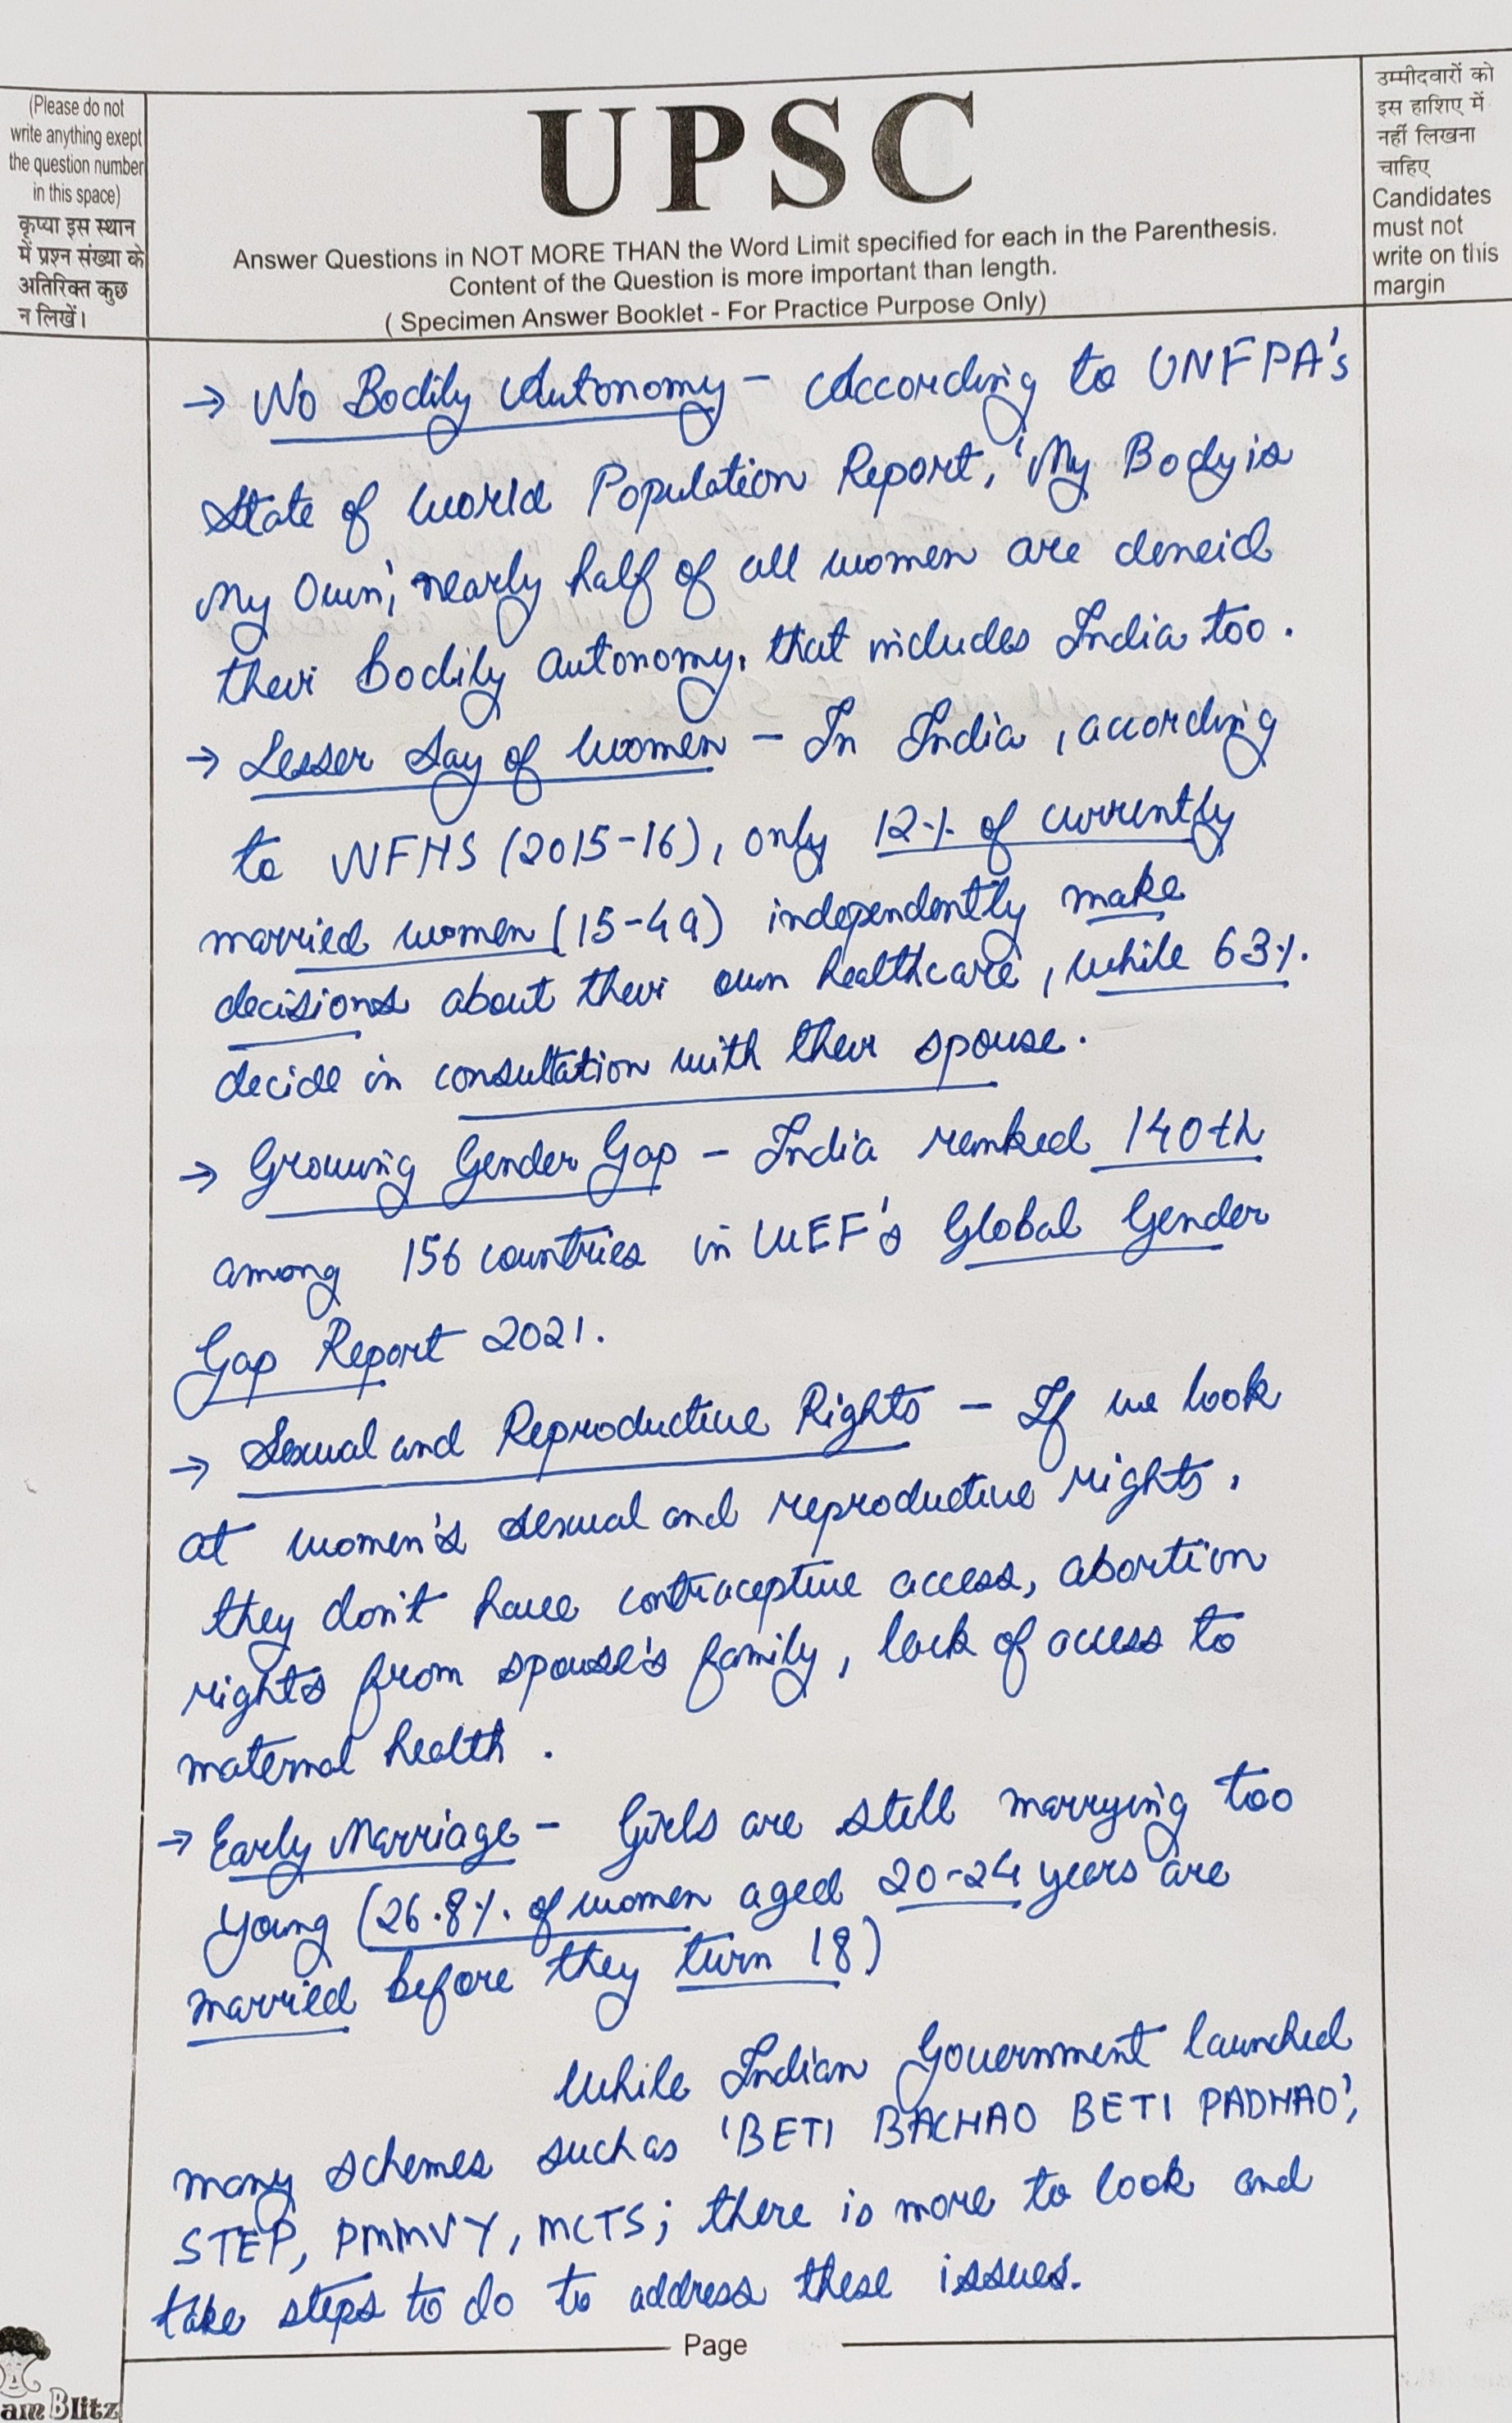 (Please do not
write anything exept
the question number
in this space)
कृप्या इस स्थान
में प्रश्न संख्या के
अतिरिक्त कुछ
न लिखें।
UPSC
Answer Questions in NOT MORE THAN the Word Limit specified for each in the Parenthesis.
Content of the Question is more important than length.
( Specimen Answer Booklet - For Practice Purpose Only)
उम्मीदवारों को
इस हाशिए में
नहीं लिखना
चाहिए
Candidates
must not
write on this
margin
→ No Bodily Autonomy – According to UNFPA's
State of World Population Report, 'My Body is
My Own', nearly half of all women are deneid
their bodily autonomy, that includes India too.
→ Lesser Say of Women – In India, according
to NFHS (2015-16), only 12% of currently
married women (15-49) independently make
decisions about their own healthcare, while 63%
decide in consultation with their spouse.
→ Growing Gender Gap – India ranked 140th
among 156 countries in WEF's Global Gender
Gap Report 2021.
→ Sexual and Reproductive Rights – If we look
at women's sexual and reproductive rights,
they don't have contraceptive access, abortion
rights from spouse's family, lack of access to
maternal health.
→ Early Marriage – Girls are still marrying too
young (26.8% of women aged 20-24 years are
married before they turn 18)
While Indian Government launched
many schemes such as 'BETI BACHAO BETI PADHAO',
STEP, PMMVY, MCTS; there is more to look and
take steps to do to address these issues.
Page
am Blitz